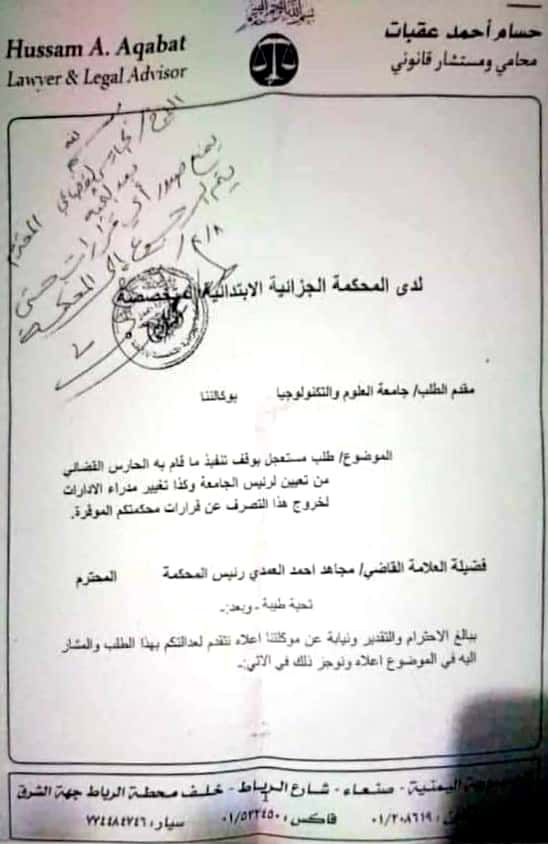 بسم الله الرحمن الرحيم
حسام أحمد عقبات
محامي ومستشار قانوني
Hussam A. Aqabat
Lawyer & Legal Advisor
الأخ/ الحارس القضائي المحترم
بعد التحية
يمنع صدور أي قرارات حتى
يتم الرجوع إلى المحكمة
لدى المحكمة الجزائية الابتدائية المتخصصة
مقدم الطلب/ جامعة العلوم والتكنولوجيا بوكالتنا
الموضوع/ طلب مستعجل بوقف تنفيذ ما قام به الحارس القضائي
من تعيين لرئيس الجامعة وكذا تغيير مدراء الادارات
لخروج هذا التصرف عن قرارات محكمتكم الموقرة.
فضيلة العلامة القاضي/ مجاهد احمد العمدي رئيس المحكمة المحترم
تحية طيبة ـ وبعد:ـ
ببالغ الاحترام والتقدير ونيابة عن موكلتنا اعلاه نتقدم لعدالتكم بهذا الطلب والمشار
اليه في الموضوع اعلاه ونوجز ذلك في الاتي:ـ
اليمنية - صنعاء - شارع الرباط - خلف محطة الرباط جهة الشرق
٠١/٢٠٨٦١٩ فاكس: ٠١/٥٣٢٤٥٠ سيار: ٧٧٤٤٨٤٧٤٦